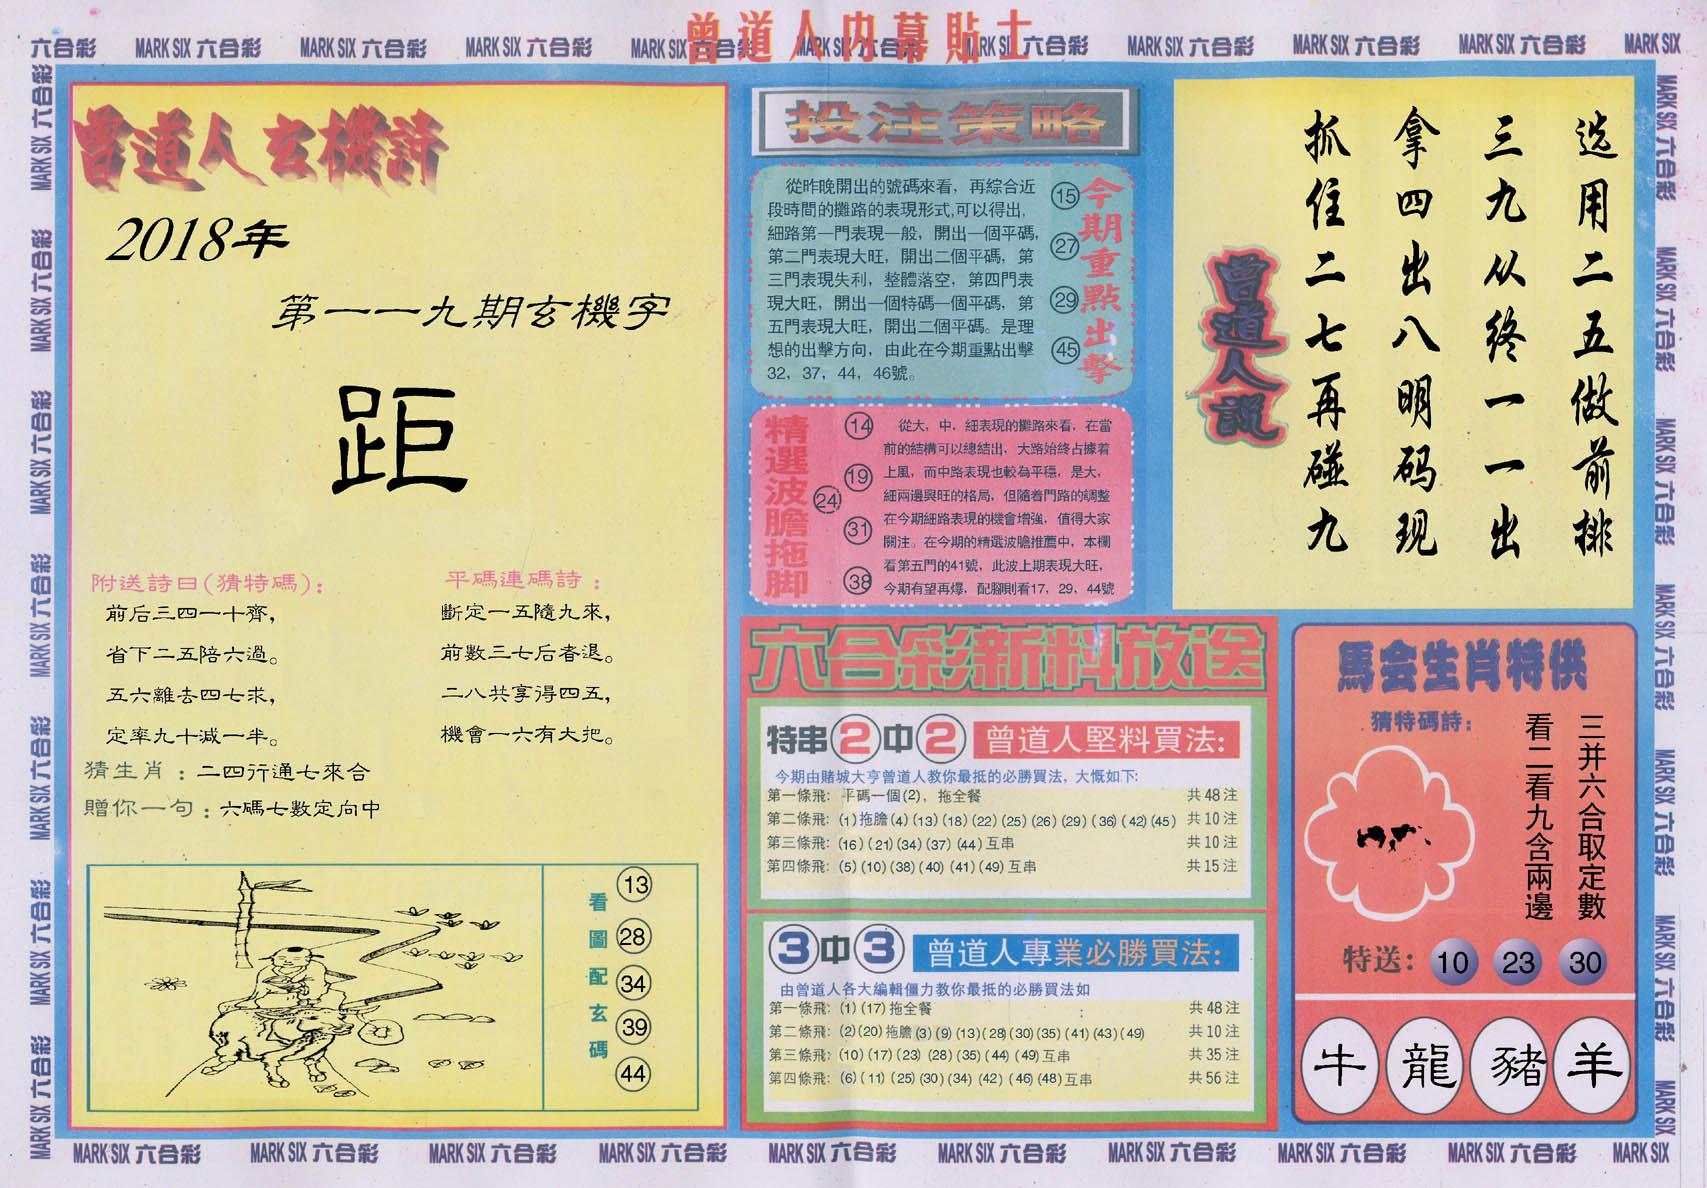 曾道人内幕貼士
六合彩 MARK SIX 六合彩 MARK SIX 六合彩 MARK SIX 六合彩 MARK SIX 六合彩 MARK SIX 六合彩 MARK SIX 六合彩 MARK SIX 六合彩 MARK SIX 六合彩 MARK SIX 六合彩 MARK SIX
曾道人玄機詩
2018年
第一一九期玄機字
距
附送詩曰(猜特碼):
前后三四一十齊,
省下二五陪六過。
五六離去四七求,
定率九十減一半。
平碼連碼詩:
斷定一五隨九來,
前數三七后者退。
二八共享得四五,
機會一六有大把。
猜生肖:二四行通七來合
贈你一句:六碼七數定向中
看圖配玄碼
13
28
34
39
44
投注策略
從昨晚開出的號碼來看，再綜合近
段時間的攤路的表現形式,可以得出,
細路第一門表現一般，開出一個平碼,
第二門表現大旺，開出二個平碼，第
三門表現失利，整體落空，第四門表
現大旺，開出一個特碼一個平碼，第
五門表現大旺，開出二個平碼。是理
想的出擊方向，由此在今期重點出擊
32，37，44，46號。
15
27
29
45
今期重點出擊
精選波膽拖脚
14
19
24
31
38
從大，中，細表現的攤路來看，在當
前的結構可以總結出，大路始終占據着
上風，而中路表現也較為平穩，是大，
細兩邊興旺的格局，但隨着門路的調整
在今期細路表現的機會增強，值得大家
關注。在今期的精選波膽推薦中，本欄
看第五門的41號，此波上期表現大旺，
今期有望再爆，配腳則看17，29，44號
选用二五做前排
三九从终一一出
拿四出八明码现
抓住二七再碰九
曾道人説
六合彩新料放送
特串2中2 曾道人堅料買法:
今期由賭城大亨曾道人教你最抵的必勝買法，大慨如下:
第一條飛: 平碼一個(2)，拖全餐 共48注
第二條飛: (1)拖膽(4)(13)(18)(22)(25)(26)(29)(36)(42)(45) 共10注
第三條飛: (16)(21)(34)(37)(44)互串 共10注
第四條飛: (5)(10)(38)(40)(41)(49)互串 共15注
3中3 曾道人專業必勝買法:
由曾道人各大編輯僵力教你最抵的必勝買法如
第一條飛: (1)(17)拖全餐 共48注
第二條飛: (2)(20)拖膽(3)(9)(13)(28)(30)(35)(41)(43)(49) 共10注
第三條飛: (10)(17)(23)(28)(35)(44)(49)互串 共35注
第四條飛: (6)(11)(25)(30)(34)(42)(46)(48)互串 共56注
馬会生肖特供
猜特碼詩:
三并六合取定數
看二看九含兩邊
特送: 10 23 30
牛 龍 豬 羊
MARK SIX 六合彩 MARK SIX 六合彩 MARK SIX 六合彩 MARK SIX 六合彩 MARK SIX 六合彩 MARK SIX 六合彩 MARK SIX 六合彩 MARK SIX 六合彩 MARK SIX 六合彩 MARK SIX